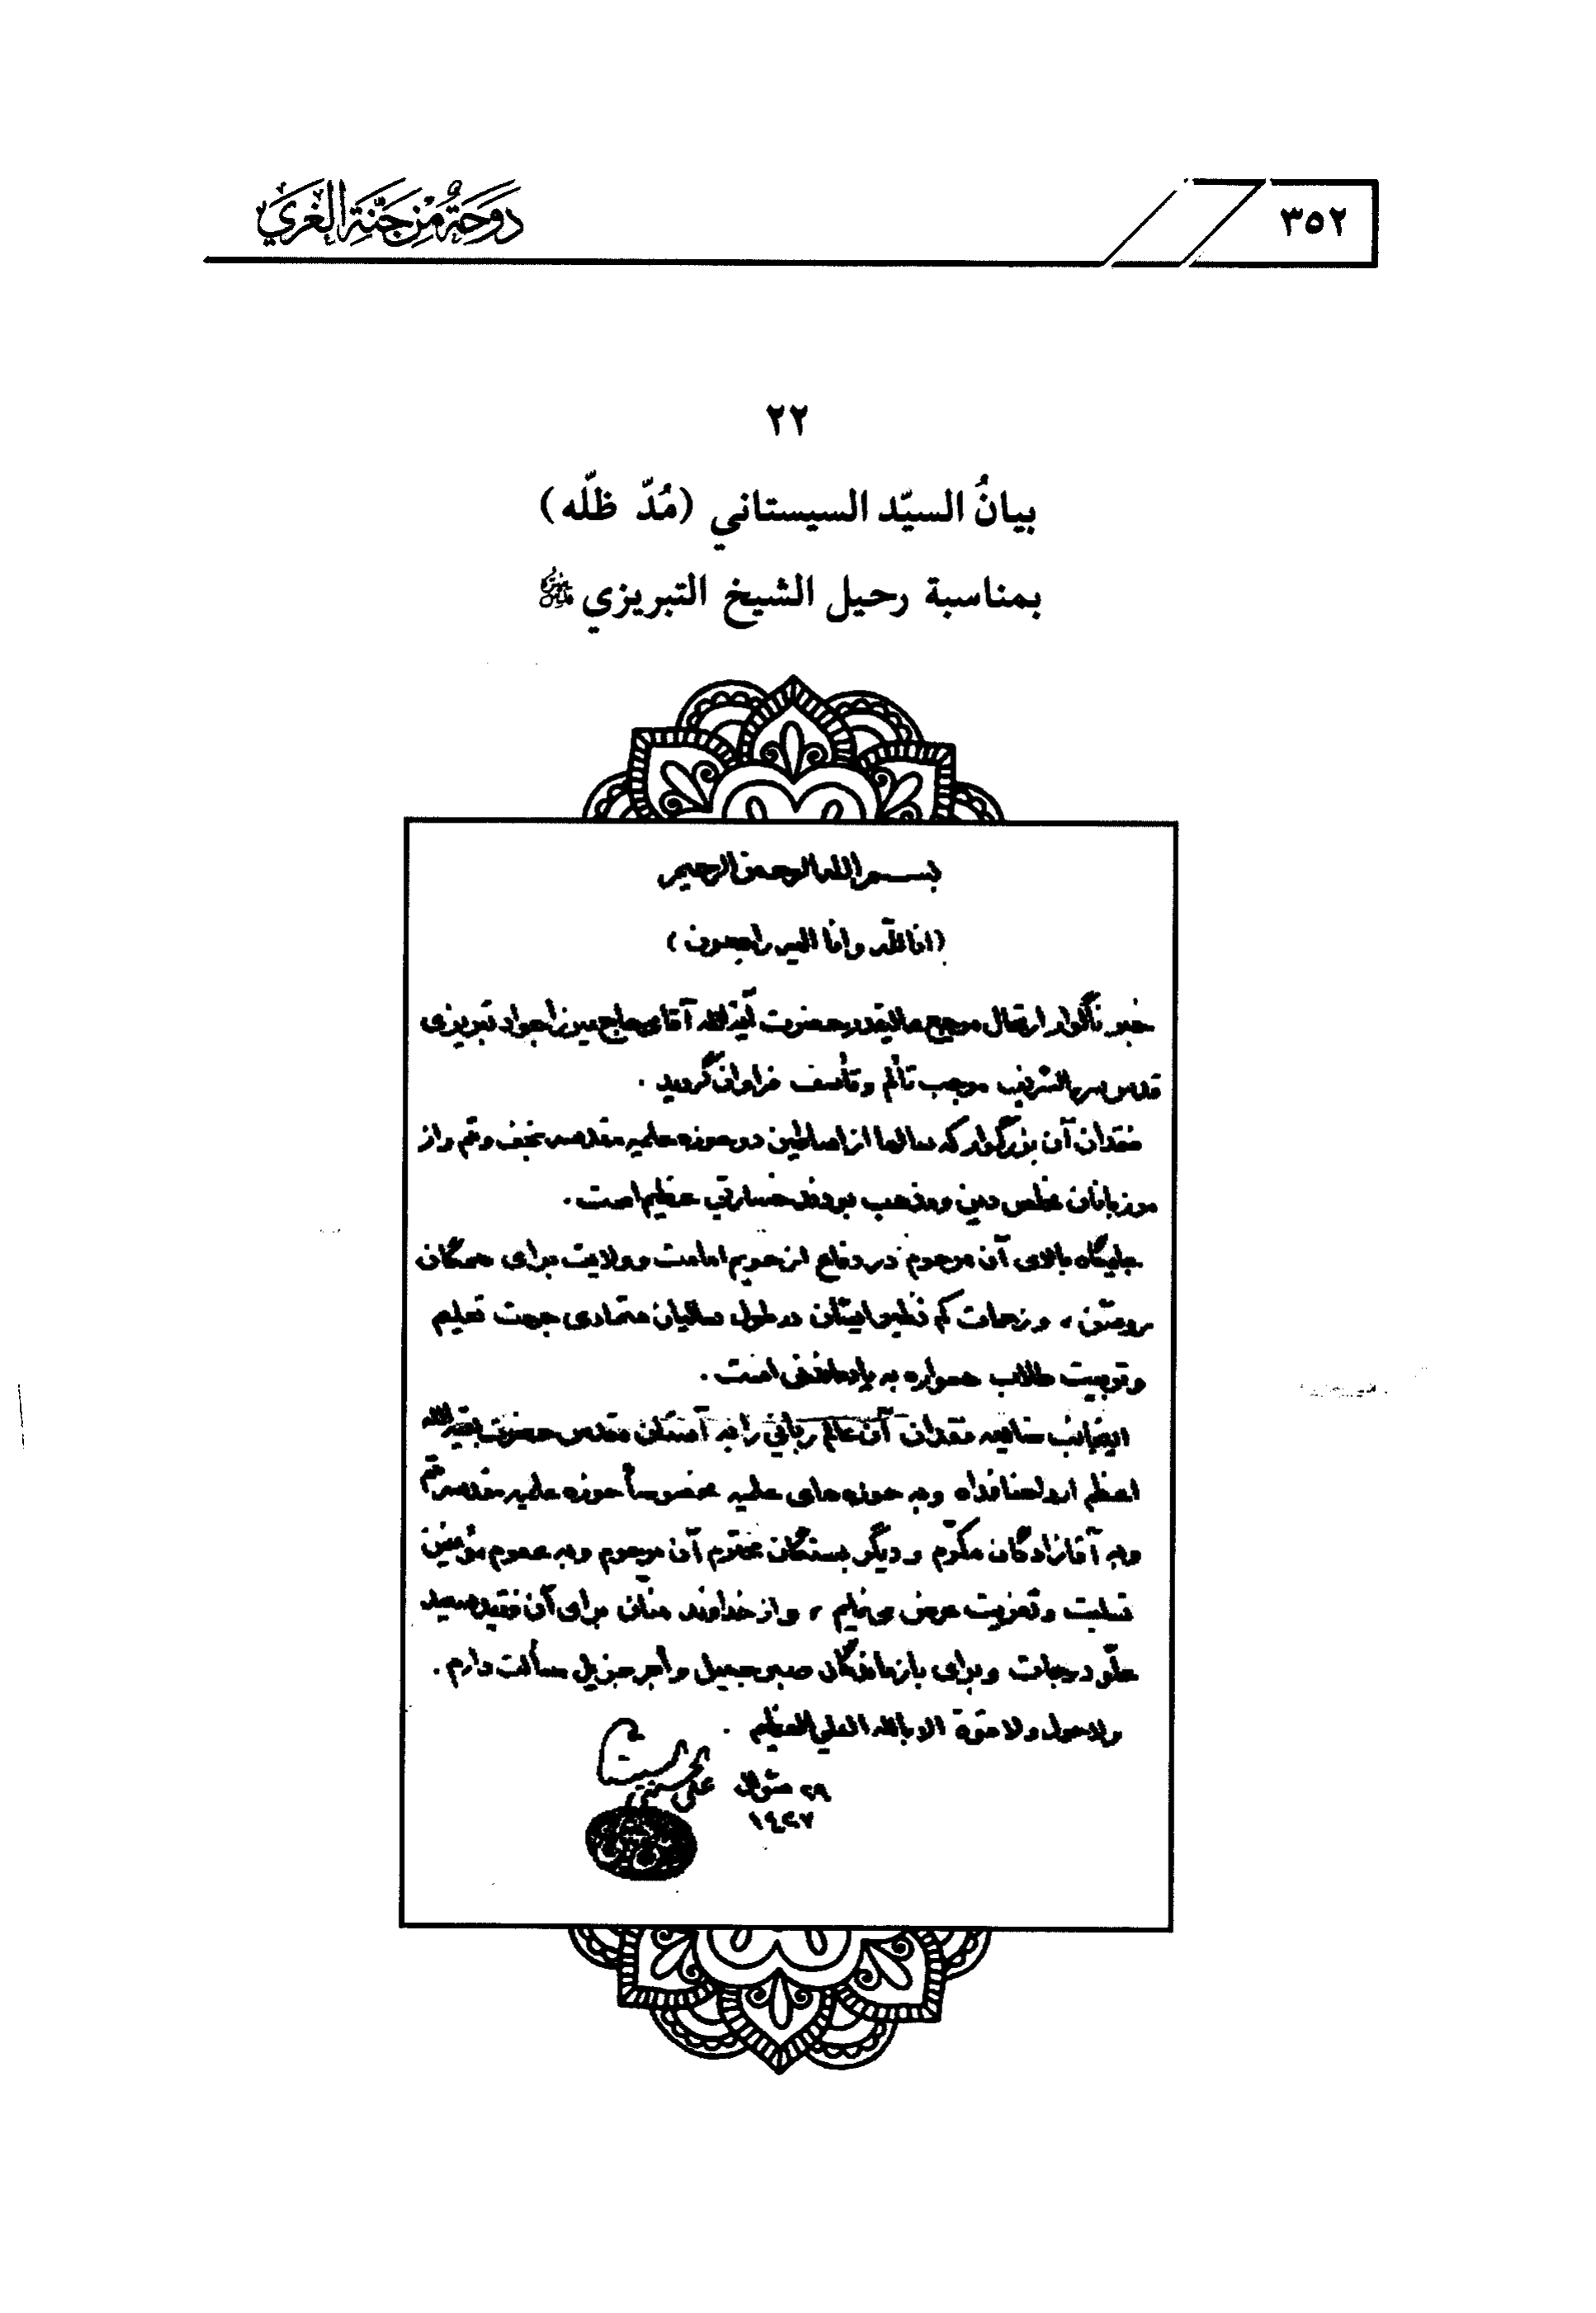 ٣٥٢
دَوحَةٌ مِن جَنَّةِ الغَرِيّ
٢٢
بيانُ السيّد السيستاني (مُدّ ظلّه)
بمناسبة رحيل الشيخ التبريزي
بسم الله الرحمن الرحيم
(انا لله وانا اليه راجعون)
خبر ناگوار ارتحال مرجع عاليقدر حضرت آية الله آقای حاج ميرزا جواد تبريزی
قدس سره الشريف موجب تألم وتأسف فراوان گرديد .
فقدان آن بزرگوار كه سالها از اساطين دو حوزه علميه مقدسه نجف وقم واز
مرزبانان مخلص دين ومذهب بودند خسارتي عظيم است .
جايگاه بالای آن مرحوم در دفاع از حريم امامت وولايت برای همگان
روشن ، وزحمات كم نظير ايشان در طول ساليان متمادی جهت تعليم
وتربيت طلاب همواره به ياد ماندنی است .
اينجانب ضايعه فقدان آن عالم رباني را به آستان مقدس حضرت بقية الله
اعظم ارواحنا فداه وبه حوزه های علميه مخصوصاً حوزه علميه مقدسه قم
وبه آقازادگان مكرّم وديگر بستگان محترم آن مرحوم وبه عموم مؤمنين
تسليت وتعزيت عرض می نمايم ، واز خداوند منّان برای آن فقيد سعيد
علّو درجات وبرای بازماندگان صبر جميل وأجر جزيل مسألت دارم .
ولا حول ولا قوة الا بالله العلي العظيم .
٢٩ شوال
١٤٢٧
علي الحسيني السيستاني